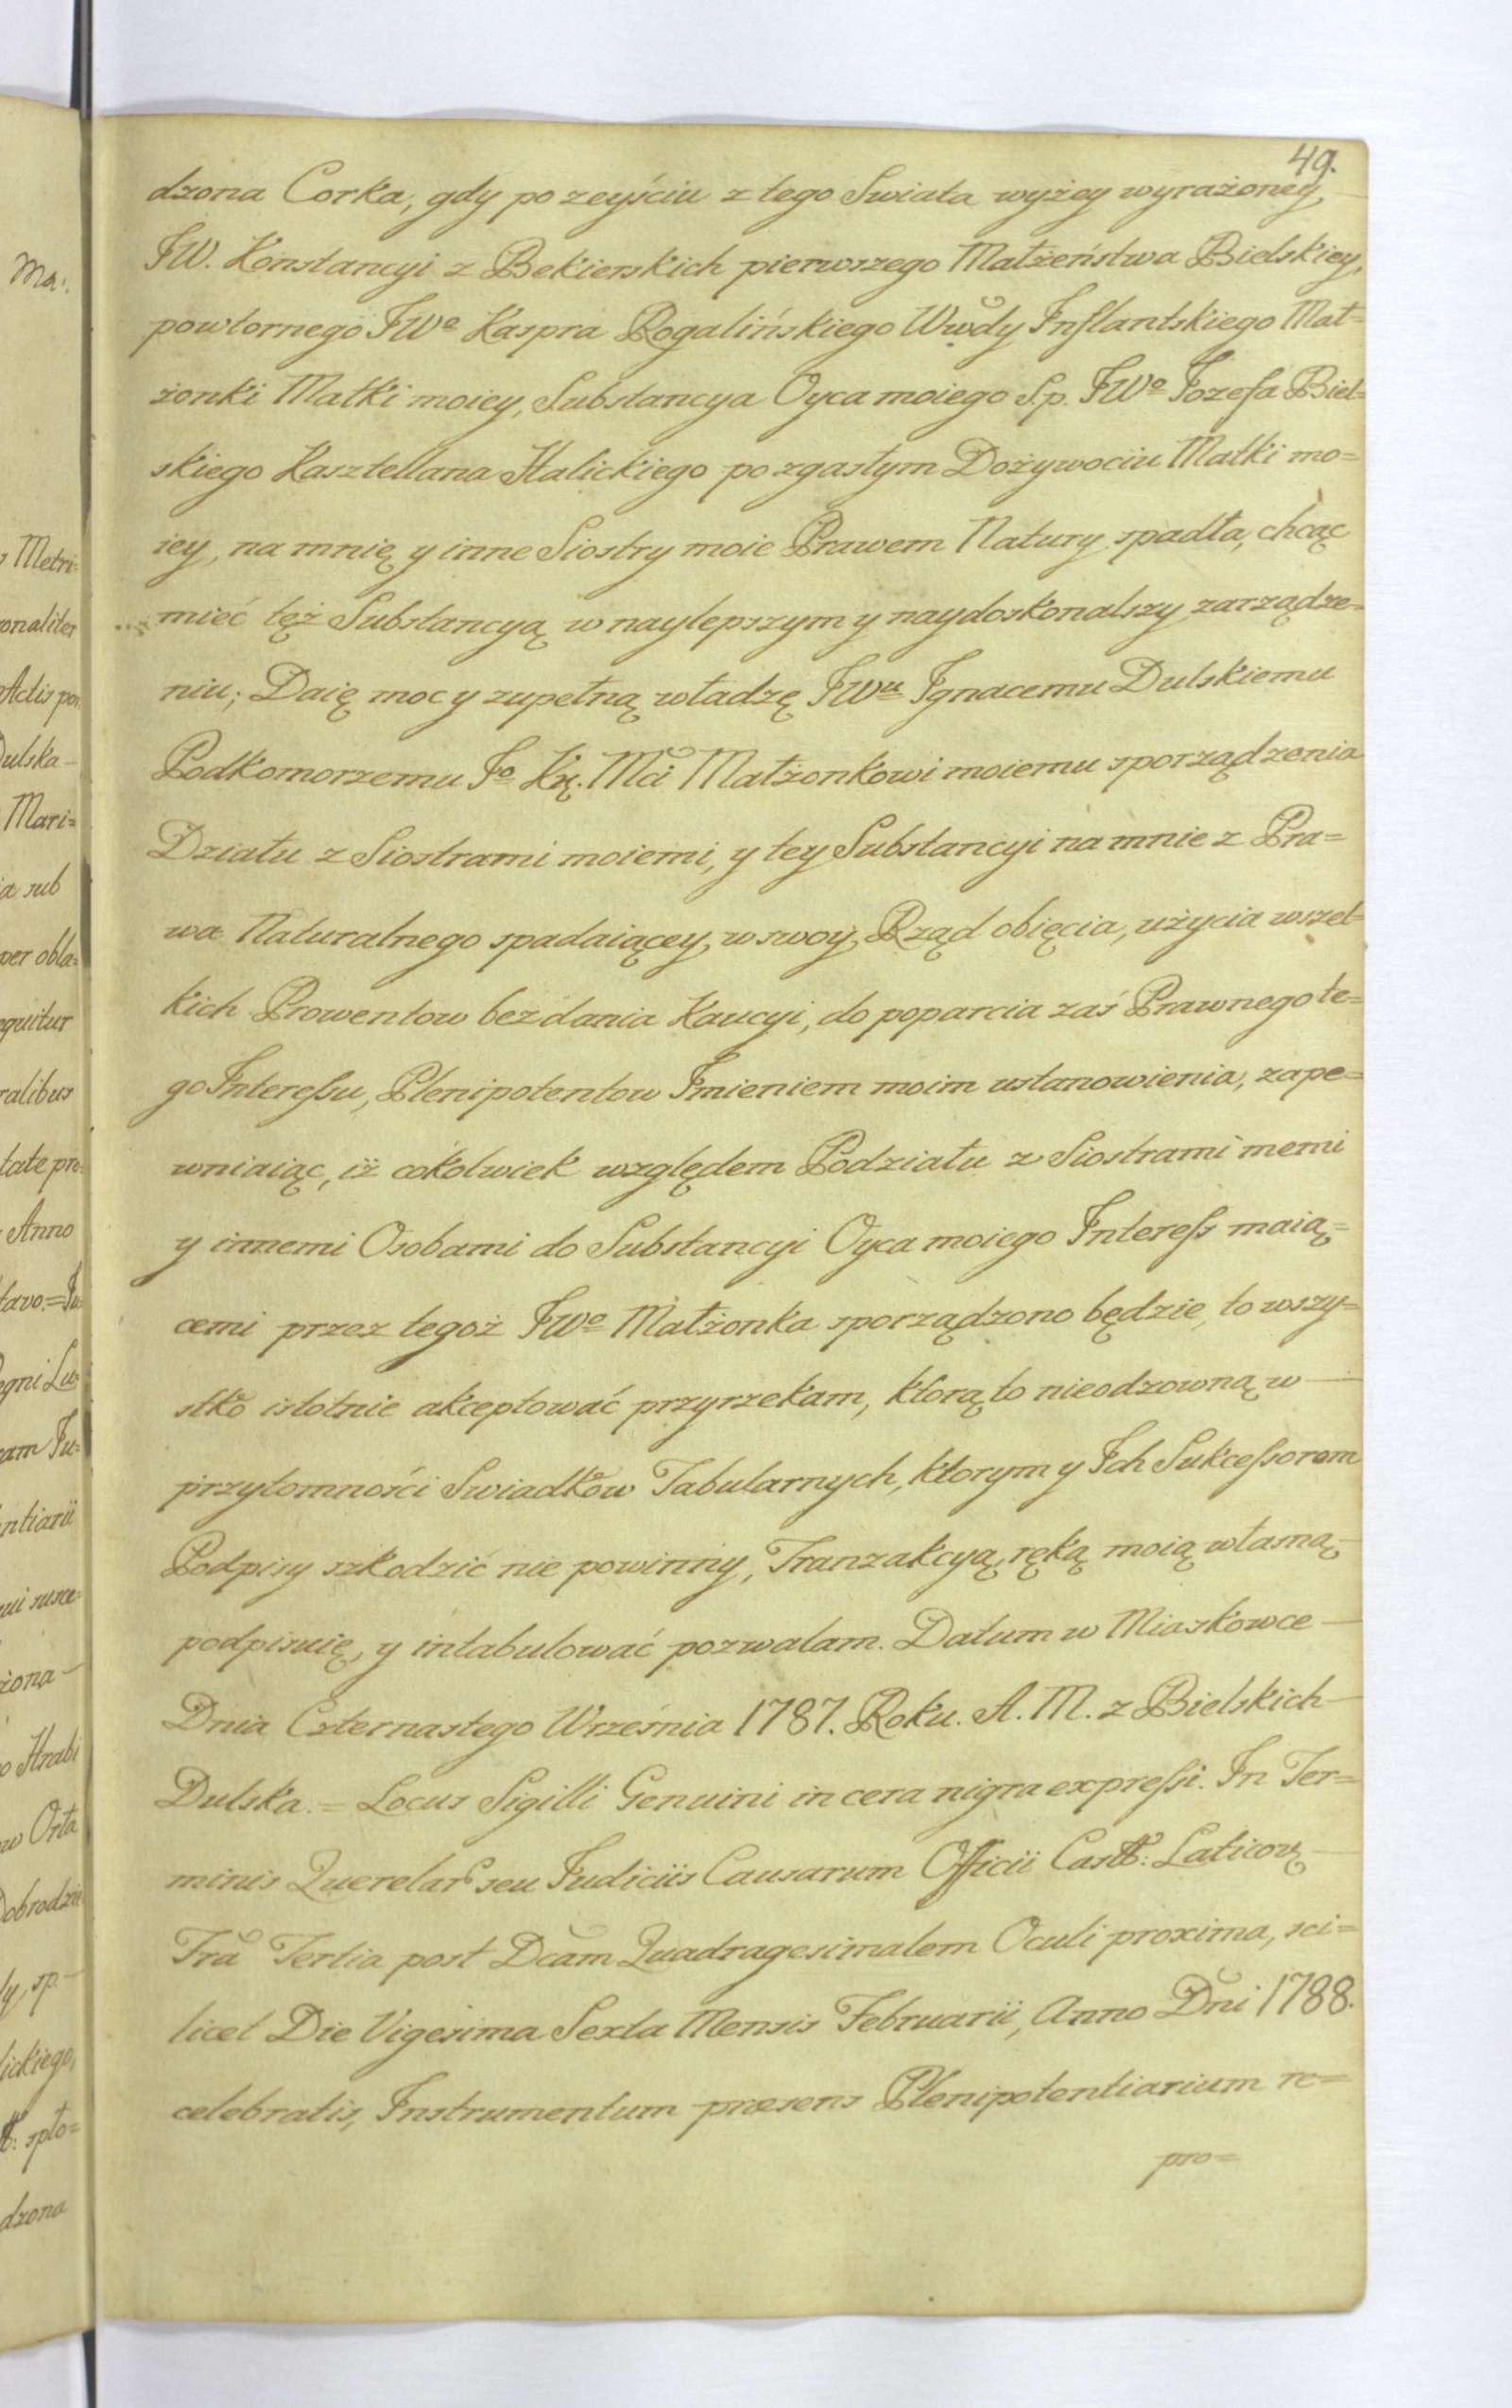 49.
dzona Corka, gdy po zeyściu z tego Swiata wyżey wyrażoney
JW. Konstancyi z Bekierskich pierwszego Małżeństwa Bielskiey,
powtornego JWº Kaspra Rogalińskiego Wwdy Inflantskiego Mał=
żonki Matki moiey, Substancya Oyca moiego S.p. JWº Jozefa Biel=
skiego Kasztellana Halickiego po zgasłym Dożywociu Matki mo=
iey, na mnię y inne Siostry moie Prawem Natury spadła, chcąc
mieć tęż Substancyą w naylepszym y naydoskonalszy zarządze=
niu; Daię moc y zupełną władzę JWu Ignacemu Dulskiemu
Podkomorzemu Jº Kr. Mci Małżonkowi moiemu sporządzenia
Działu z Siostrami moiemi, y tey Substancyi na mnie z Pra=
wa Naturalnego spadaiącey, w swoy Rząd obięcia, użycia wszel=
kich Prowentow bez dania Kaucyi, do poparcia zaś Prawnego te=
go Interessu, Plenipotentow Imieniem moim ustanowienia, zape=
wniaiąc, iż cokolwiek względem Podziału z Siostrami memi
y innemi Osobami do Substancyi Oyca moiego Interess maią=
cemi przez tegoż JWº Małżonka sporządzono będzie, to wszy=
stko istotnie akceptować przyrzekam, ktorą to nieodzowną w
przytomności Swiadkow Tabularnych, ktorym y Ich Sukcessorom
Podpisy szkodzić nie powinny, Tranzakcyą, ręką moią własną
podpisuię, y intabulować pozwalam. Datum w Miaskowce
Dnia Czternastego Września 1787. Roku. A. M. z Bielskich
Dulska. = Locus Sigilli Genuini in cera nigra expressi. In Ter=
minis Querelar seu Judiciis Causarum Officii Castr: Laticov
Fra Tertia post Dcam Quadragesimalem Oculi proxima, sci=
licet Die Vigesima Sexta Mensis Februarii, Anno Dni 1788.
celebratis, Instrumentum præsens Plenipotentiarium re=
pro=
Ma:
Metri=
onaliter
Actis por
Dulska
Mari=
a sub
per obla=
equitur
ralibus
tate pro=
Anno
tavo. = Ju
egni Lu=
am Ju=
ntiarii
ui susce=
żona
o Hrabi
w Orła
Dobrodzie
ly, sp.
lickiego,
spło=
dzona